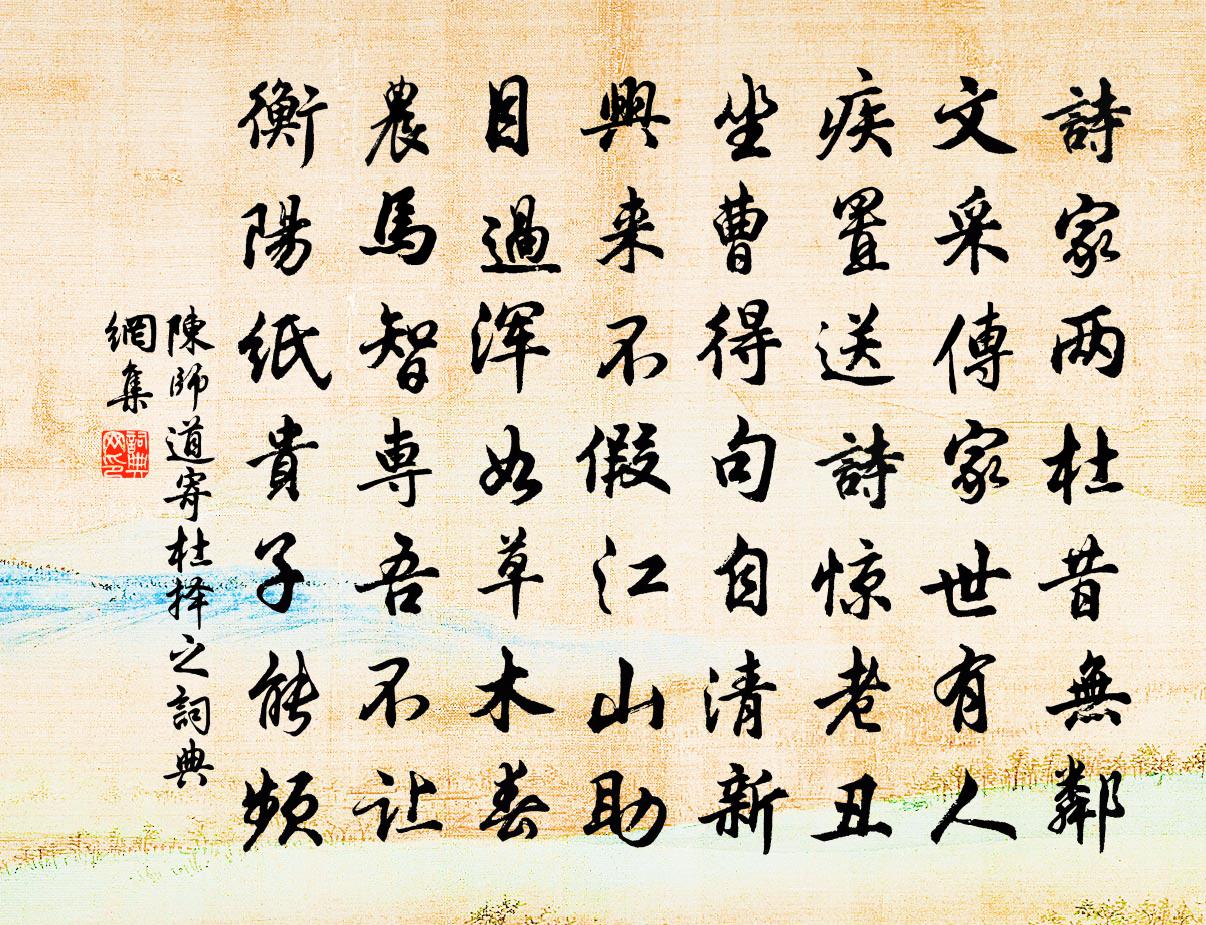 詩家两杜昔無鄰
文采傳家世有人
疾置送詩惊老丑
坐曹得句自清新
興来不假江山助
目過浑如草木春
農馬智専吾不让
衡陽紙貴子能频
陳師道寄杜择之詞典
網集
詞典
网印